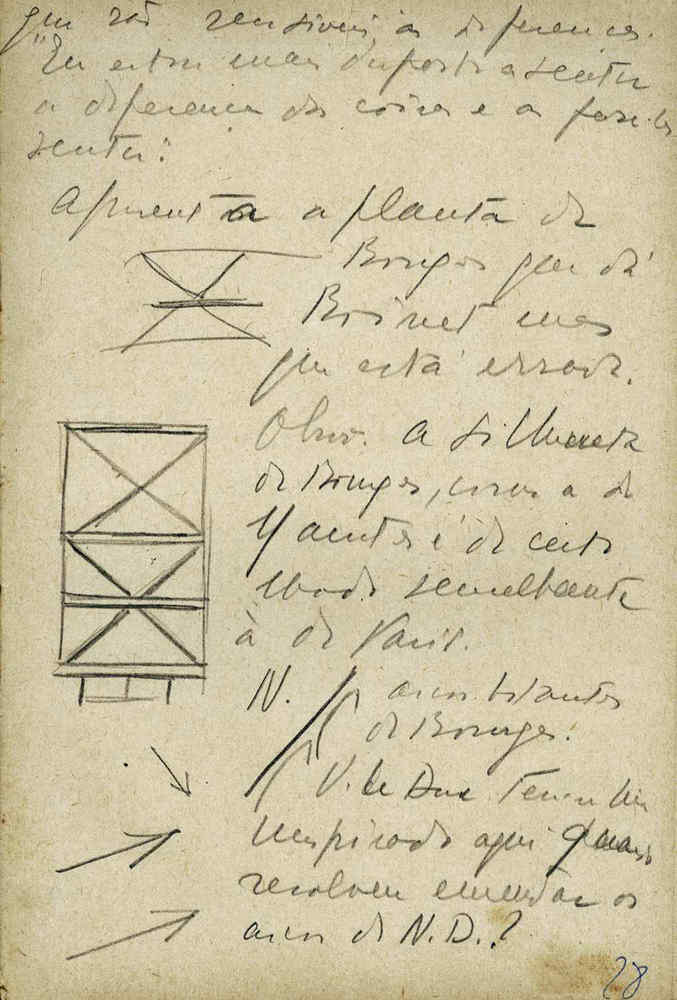 que são sensiveis às diferenças.
"Eu estou mais disposto a sentir
a diferença das coisas e a
sentir".
Apresenta a planta de
Bourges que dá
Boinet mas
que está errada.
Obs. A silhueta
de Bourges, como a de
Nantes é de certo
modo semelhante
à de Paris.
N. arcos botantes
de Bourges.
V. le Duc teria se
inspirado aqui quando
resolveu emendar os
arcos de N.D.?
28